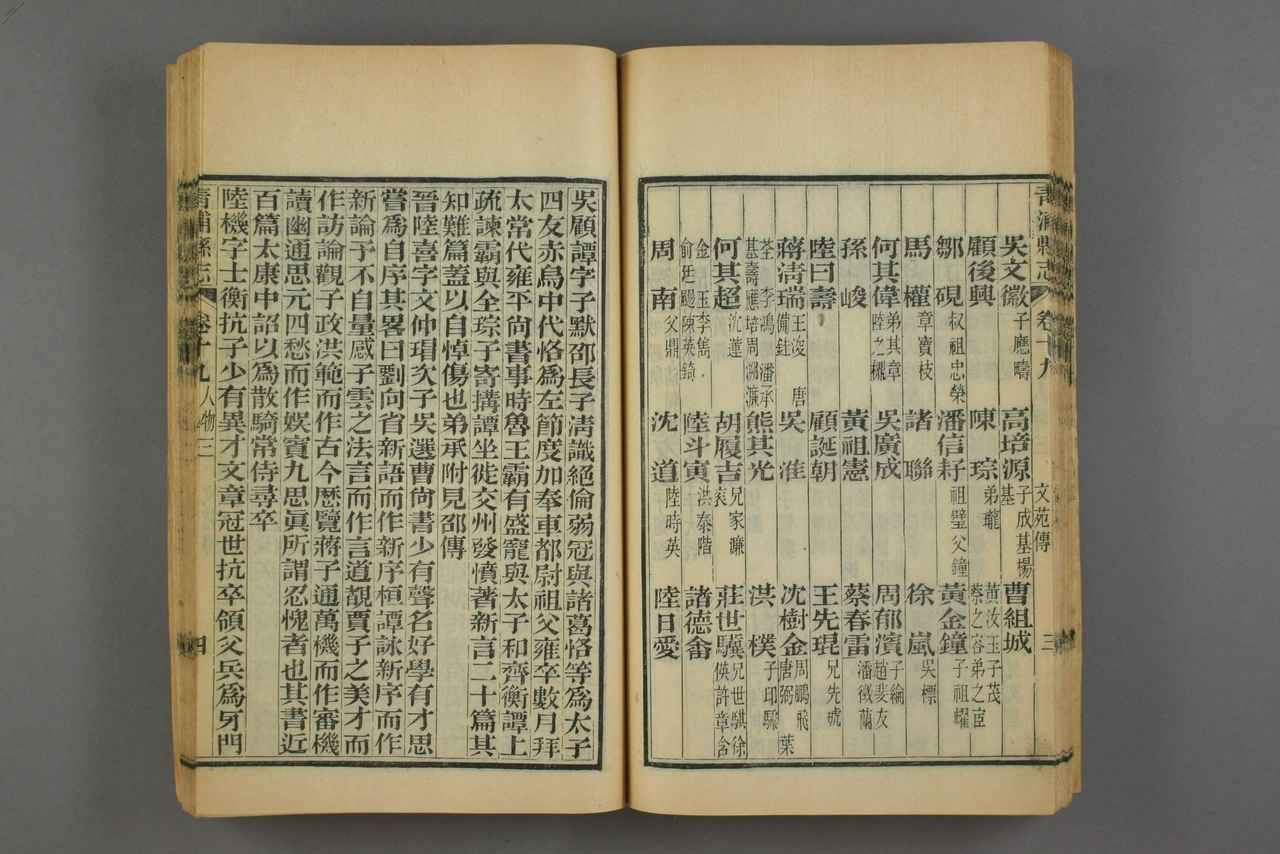 青浦縣志 卷十九 文苑傳 三
吳文徽 子應疇 高培源 子成基場基 曹組城
顧後興 陳琮 弟瓏 黃汝玉子茂 蔡之容弟之宦
鄒硯 叔祖忠榮 潘信籽 祖璧父鐘 黃金鐘 子祖耀
馬權 章寶枝 諸聯 徐嵐 吳標
何其偉 弟其章 陸之穮 吳廣成 周郁濱 子綸 趙裴友
孫峻 黃祖憲 蔡春雷 潘徵蘭
陸日壽 顧誕朝 王先琨 兄先琥
蔣清瑞 王浚 唐備銈 吳准 沈樹金 周鵬飛 唐弼 葉
荃 李鴻 潘承 甚壽 應培 周溯濂 熊其光 洪樸 子印騄
何其超 沈蓮 胡履吉 兄家濂 莊世驥 兄世騏徐
金 玉李雋 俞廷颺陳英錡 陸斗寅 洪泰階 諸德畬
周南 父鼎 沈道 陸時英 陸日愛
吳顧譚字子默邵長子淸識絕倫弱冠與諸葛恪等爲太子
四友赤烏中代恪爲左節度加奉車都尉祖父雍卒數月拜
太常代雍平尙書事時魯王霸有盛寵與太子和齊衡譚上
疏諫霸與全琮子寄搆譚坐徙交州發憤著新言二十篇其
知難篇蓋以自悼傷也弟承附見邵傳
晉陸喜字文仲瑁次子吳選曹尙書少有聲名好學有才思
嘗爲自序其畧曰劉向省新語而作新序桓譚詠新序而作
新論予不自量感子雲之法言而作言道覩賈子之美才而
作訪論觀子政洪範而作古今歷覽蔣子通萬機而作審機
讀幽通思元四愁而作娛賓九思眞所謂忍愧者也其書近
百篇太康中詔以爲散騎常侍尋卒
陸機字士衡抗子少有異才文章冠世抗卒領父兵爲牙門
靑浦縣志 卷十九 人物三 四